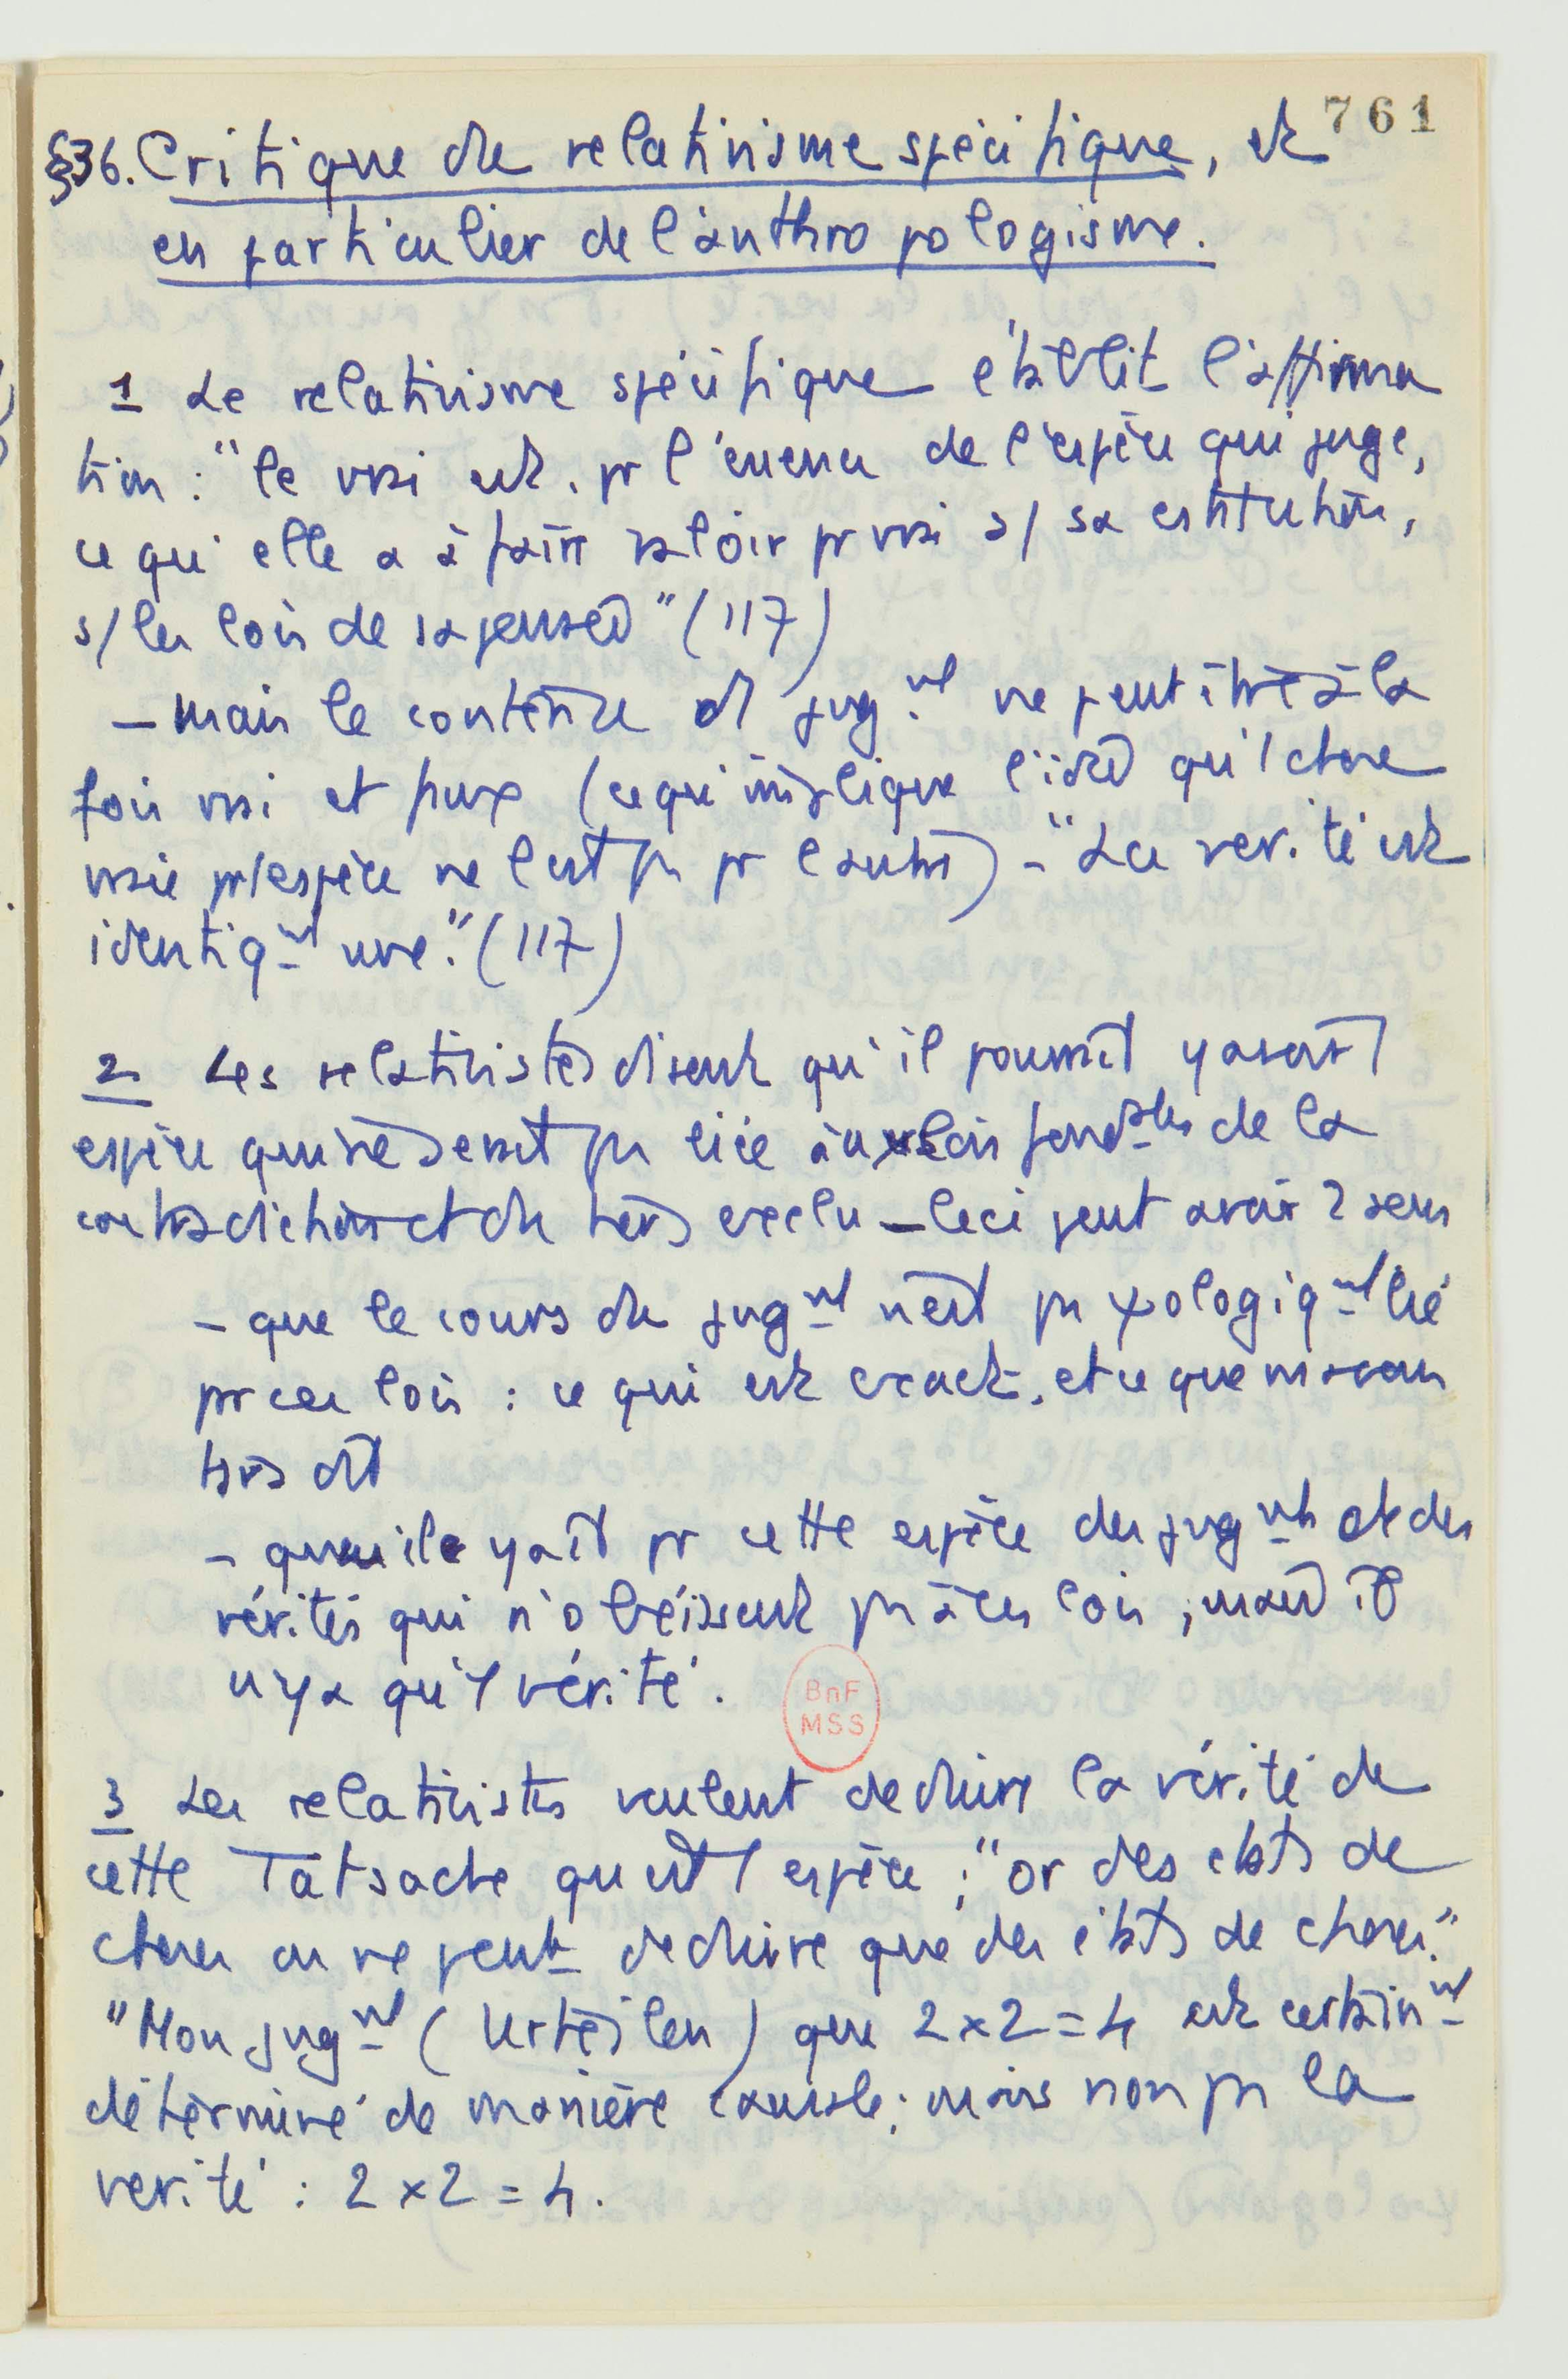 761
§36. Critique du relativisme spécifique, et
en particulier de l'anthropologisme.
1 Le relativisme spécifique établit l'affirma
tion : "le vrai est, pr l'essence de l'espèce qui juge,
ce qu'elle a à faire valoir pr vrai s/ sa constitution,
s/ les lois de sa pensée" (117)
- mais le contenu d'1 jugnt ne peut être à la
fois vrai et faux (ce qui implique l'idée qu'1 chose
vraie pr 1 espèce ne l'est pas pr l'autre) - "La vérité est
identiqnt une." (117)
2 Les relativistes disent qu'il pourrait y avoir 1
espèce qui ne serait pas liée aux lois fondales de la
contradiction et du tiers exclu - Ceci peut avoir 2 sens
- que le cours du jugnt n'est pas ψologiqnt lié
par ces lois : ce qui est exact, et ce que ns avons
tjrs dit
- qu'il y ait pr cette espèce des jugnts et des
vérités qui n'obéissent pas à ces lois ; mais il
n'y a qu'1 vérité.
BnF
MSS
3 Les relativistes veulent déduire la vérité de
cette Tatsache qu'est 1 espèce ; "or des états de
choses on ne peut déduire que des états de choses."
"Mon jugnt (Urteilen) que 2 x 2 = 4 est certainnt
déterminé de manière causale ; mais non pas la
vérité : 2 x 2 = 4.